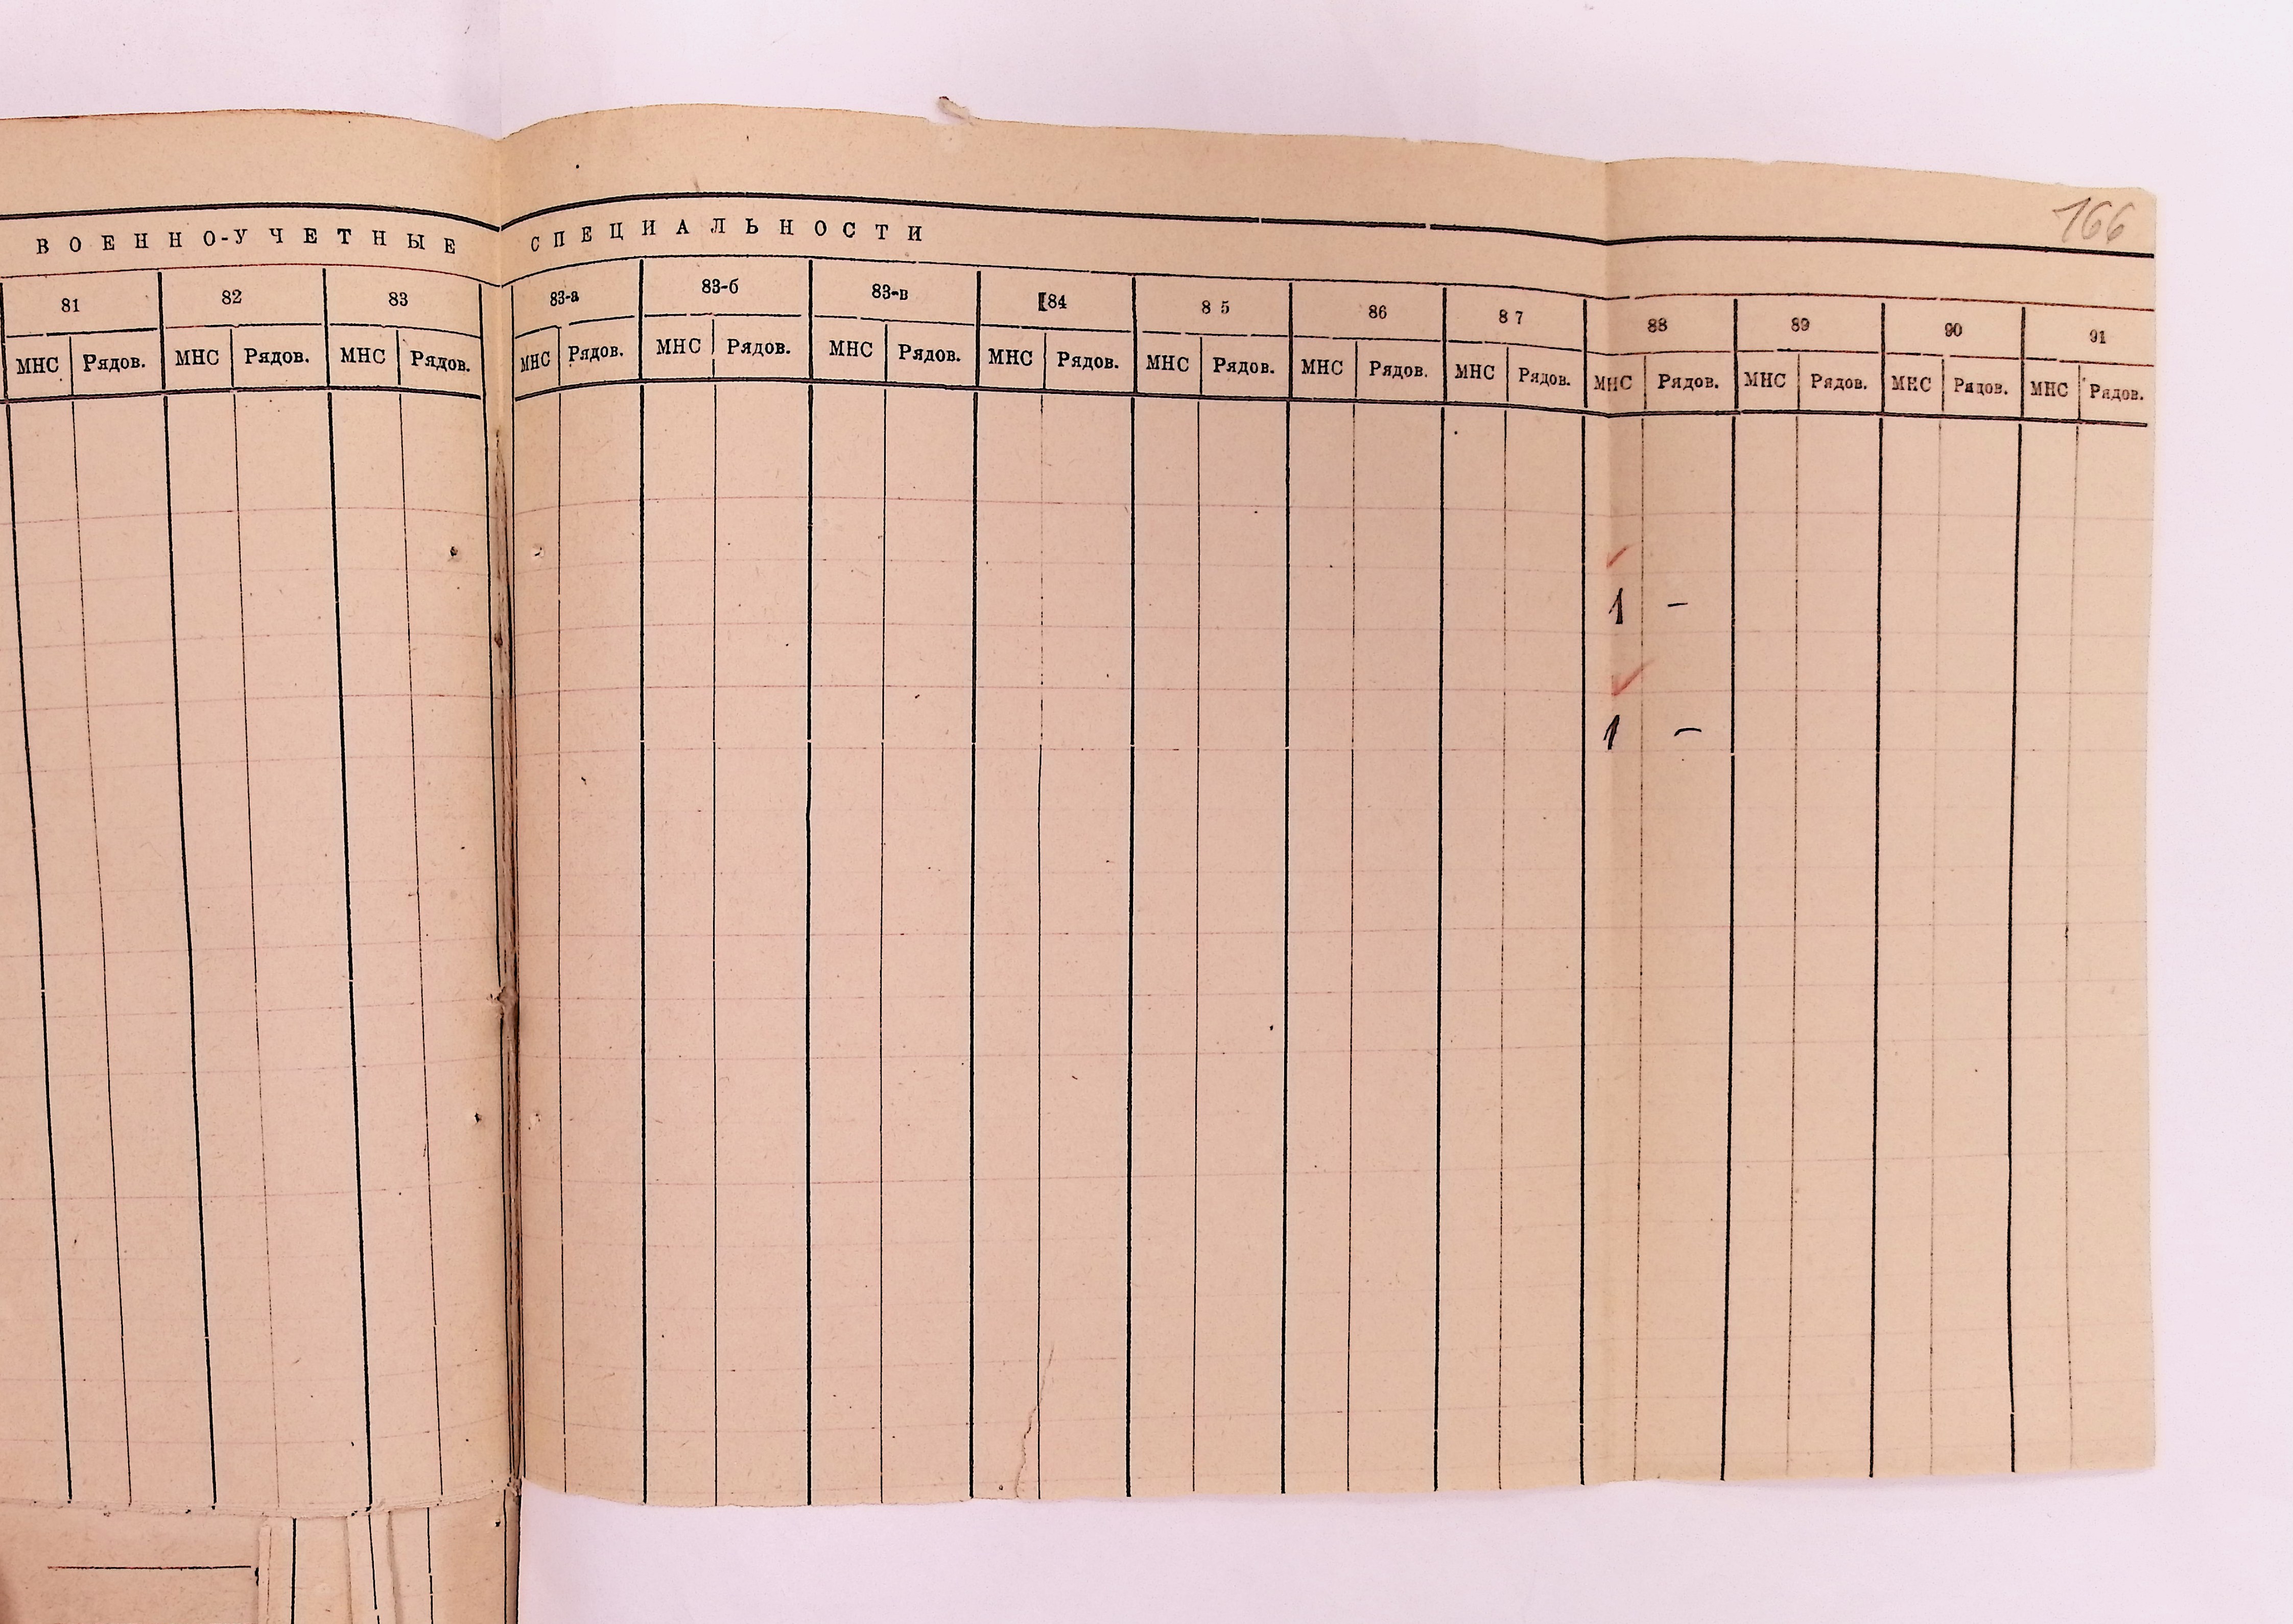 166
ВОЕННО-УЧЕТНЫЕ СПЕЦИАЛЬНОСТИ
81 82 83 83-а 83-б 83-в 84 85 86 87 88 89 90 91
МНС Рядов. МНС Рядов. МНС Рядов. МНС Рядов. МНС Рядов. МНС Рядов. МНС Рядов. МНС Рядов. МНС Рядов. МНС Рядов. МНС Рядов. МНС Рядов. МНС Рядов. МНС Рядов.
1 –
1 –